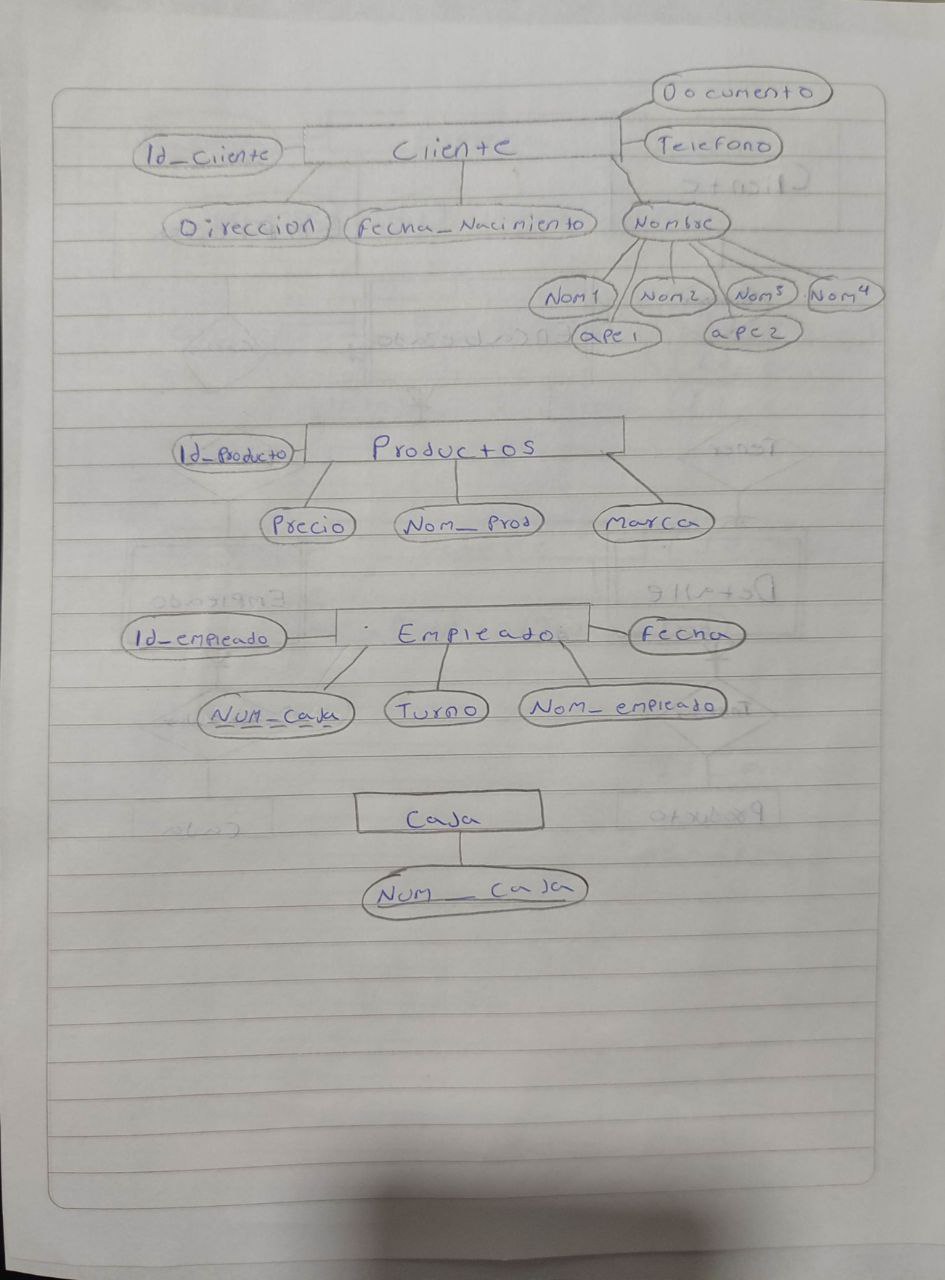 Documento
Id_Cliente Cliente Telefono
Direccion Fecha_Nacimiento Nombre
Nom1 Nom2 Nom3 Nom4
ape1 ape2
Id_Producto Productos
Precio Nom_Prod Marca
Id_empleado Empleado Fecha
Num_Caja Turno Nom_empleado
Caja
Num_Caja